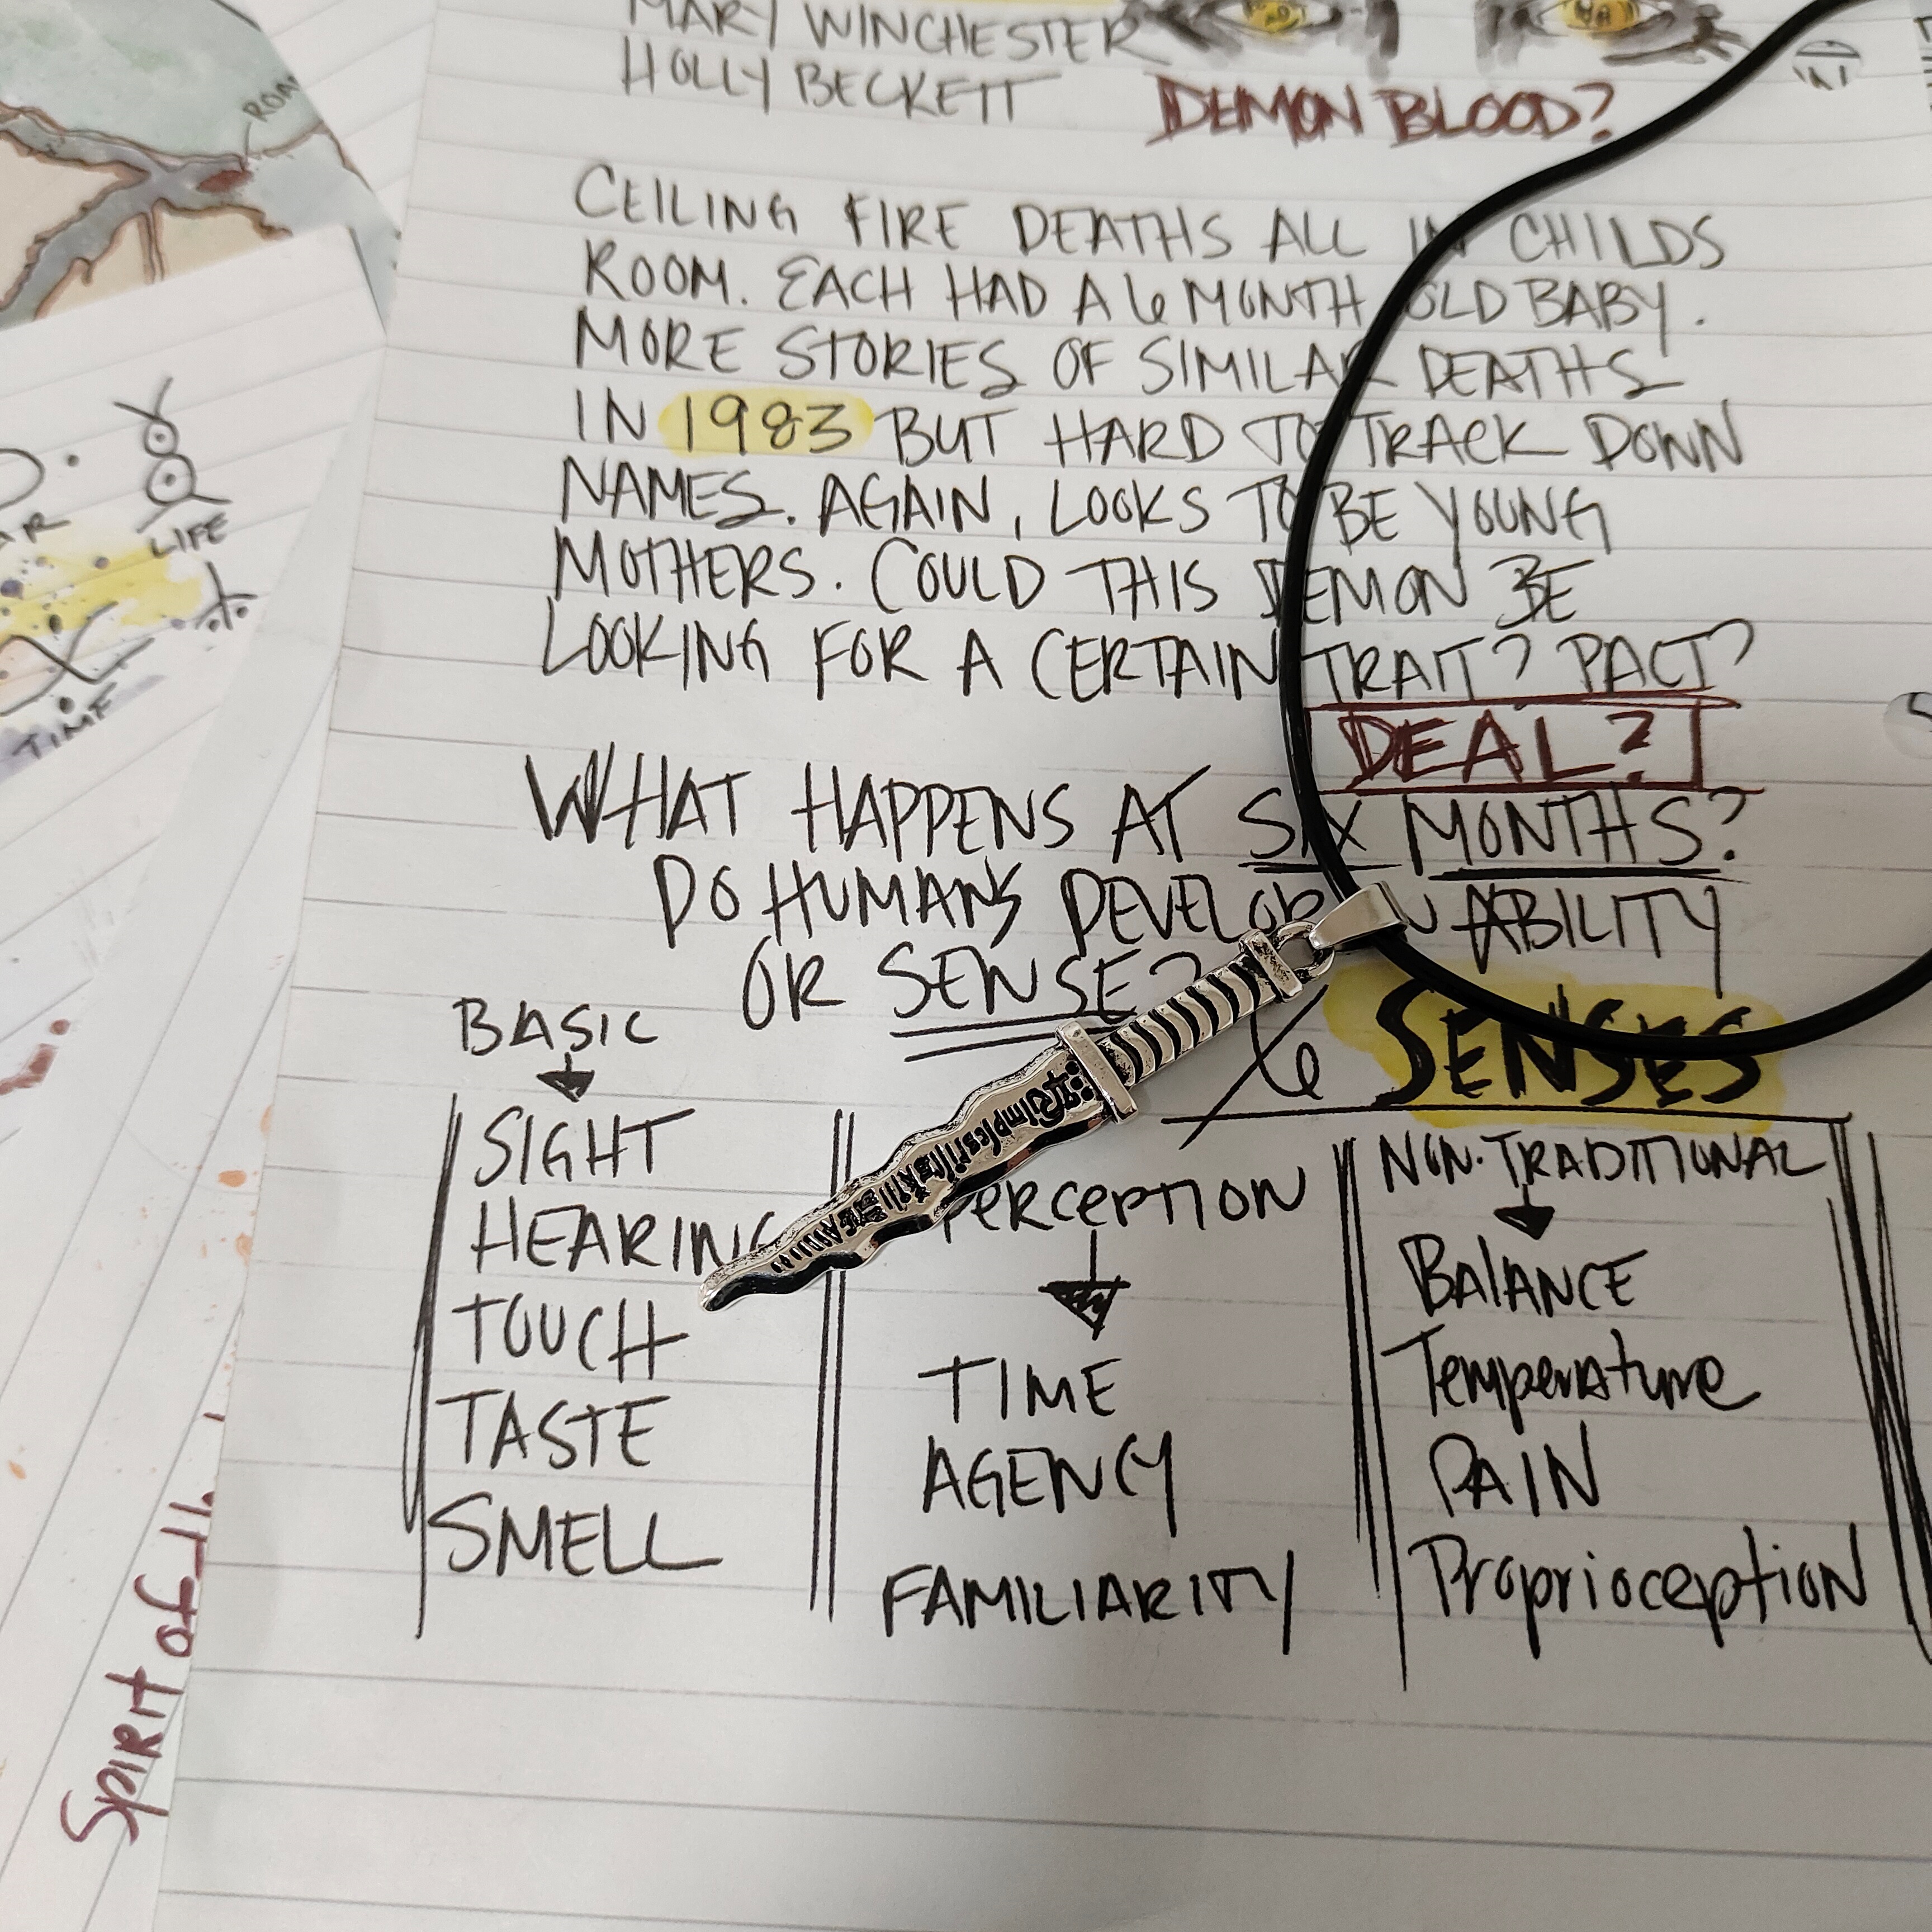 MARY WINCHESTER
HOLLY BECKETT
DEMON BLOOD?
CEILING FIRE DEATHS ALL IN CHILDS
ROOM. EACH HAD A 6 MONTH OLD BABY.
MORE STORIES OF SIMILAR DEATHS
IN 1983 BUT HARD TO TRACK DOWN
NAMES. AGAIN, LOOKS TO BE YOUNG
MOTHERS. COULD THIS DEMON BE
LOOKING FOR A CERTAIN TRAIT? PACT?
DEAL?
WHAT HAPPENS AT SIX MONTHS?
DO HUMANS DEVELOP AN ABILITY
OR SENSE?
6 SENSES
BASIC
SIGHT
HEARING
TOUCH
TASTE
SMELL
PERCEPTION
TIME
AGENCY
FAMILIARITY
NON-TRADITIONAL
BALANCE
Temperature
PAIN
Proprioception
LIFE
TIME
Spirit of